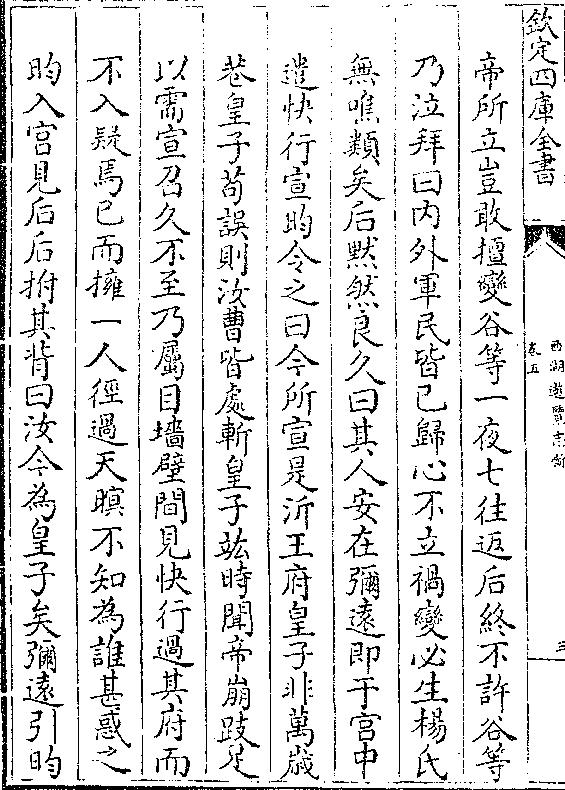 欽定四庫全書
西湖遊覽志餘
卷五
三
帝所立豈敢擅變谷等一夜七往返后終不許谷等
乃泣拜曰内外軍民皆已歸心不立禍變必生楊氏
無噍類矣后黙然良久曰其人安在彌遠即于宫中
遣快行宣昀令之曰今所宣是沂王府皇子非萬歲
巷皇子苟誤則汝曹皆處斬皇子竑時聞帝崩跂足
以需宣召久不至乃屬目墻壁間見快行過其府而
不入疑焉已而擁一人徑過天暝不知為誰甚惑之
昀入宫見后后拊其背曰汝今為皇子矣彌遠引昀